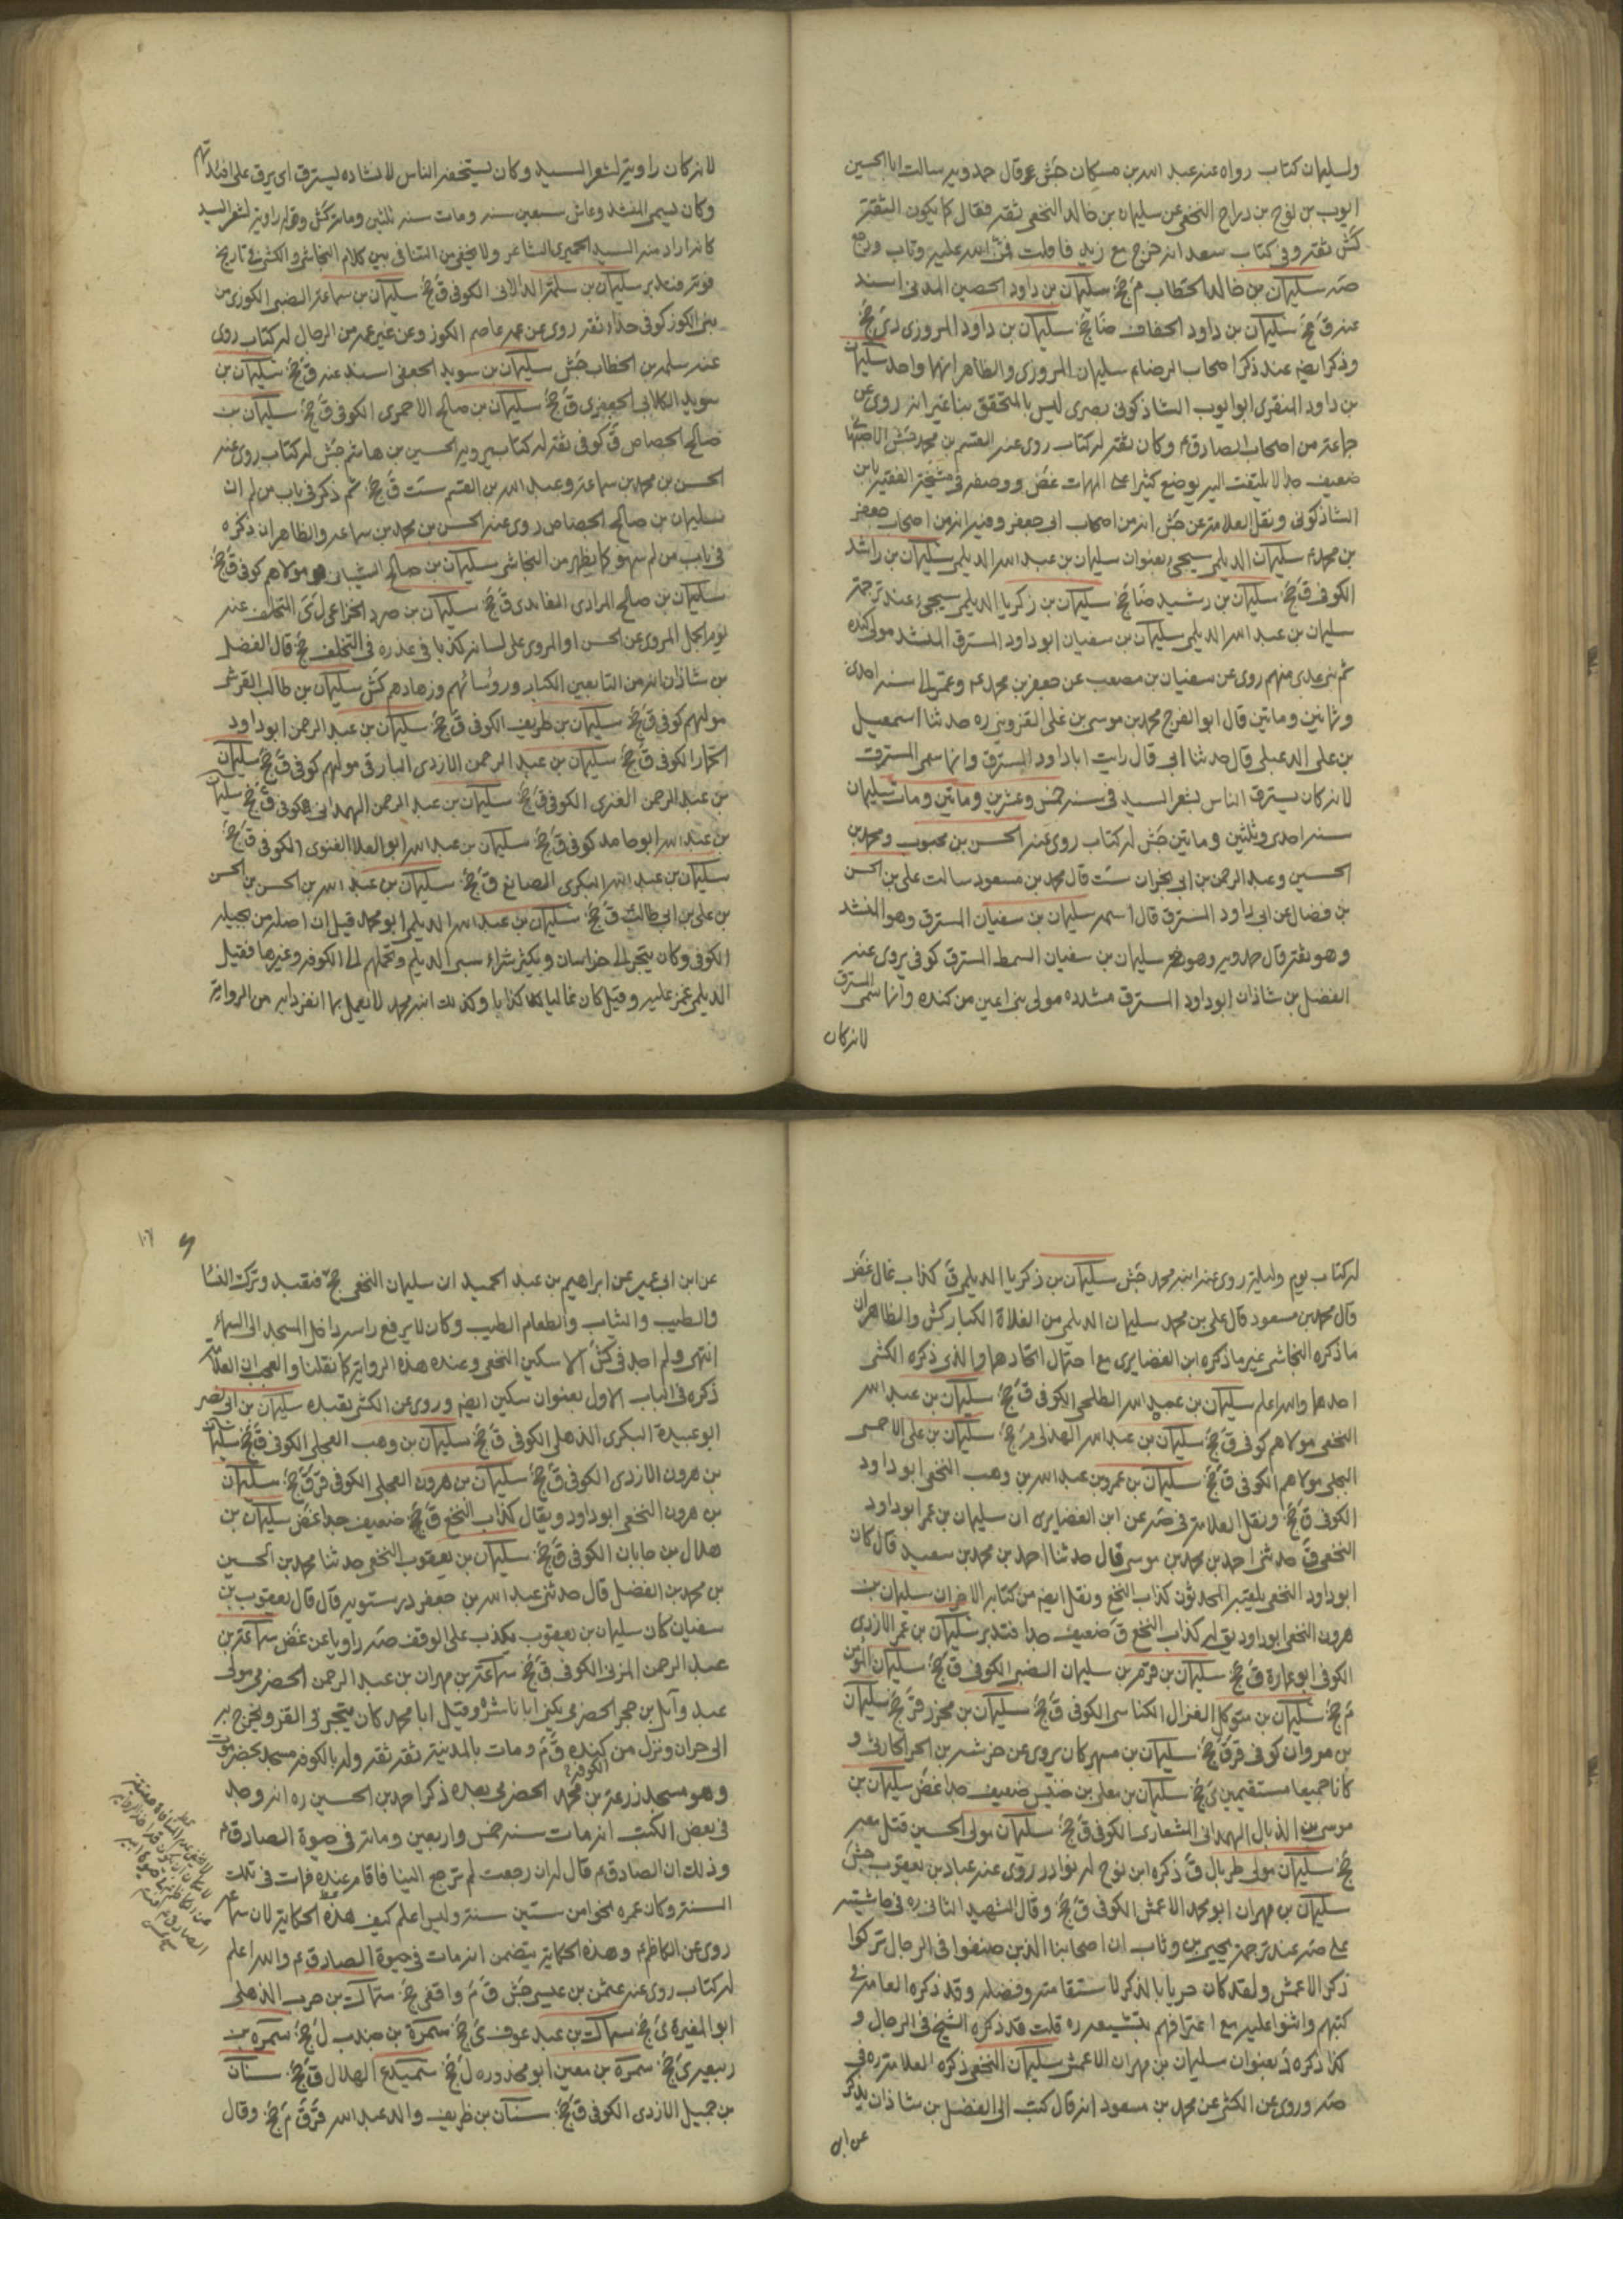 ولسليمان كتاب رواه عنه عبد الله بن مسكان جش وقال حمدويه سالت ابا الحسين
ايوب بن نوح بن دراج النخعي عن سليمان بن خالد النخعي ثقة فقال كما يكون الثقة
كش ثقة وفي كتاب سعد انه خرج مع زيد فافلت فمن الله عليه وتاب ورجع
صه سليمان بن خالد الخطاب م جخ سليمان بن داود الحصين المدني اسند
عنه ق جخ سليمان بن داود الخفاف ضا جخ سليمان بن داود المروزي دى جخ
وذكر ايضا عند ذكر اصحاب الرضا ع سليمان المروزي والظاهر انهما واحد سليمان
بن داود المنقري ابو ايوب الشاذكوني بصري ليس بالمتحقق بنا غير انه روى عن
جماعة من اصحاب الصادق ع وكان ثقة له كتاب روى عنه القسم بن محمد جش الاصبهاني
ضعيف جدا لا يلتفت اليه يوضع كثيرا على المهمات غض ووصفه في مشيخة الفقيه بابن
الشاذكوني ونقل العلامة عن جش انه من اصحاب ابي جعفر وفيه انه من اصحاب جعفر
بن محمد ع سليمان الديلمي سيجئ بعنوان سليمان بن عبد الله الديلمي سليمان بن راشد
الكوفي ق جخ سليمان بن رشيد ضا جخ سليمان بن زكريا الديلمي سيجئ عند ترجمة
سليمان بن عبد الله الديلمي سليمان بن سفيان ابو داود المسترق المنشد مولى كنده
ثم بني عدى منهم روى عن سفيان بن مصعب عن جعفر بن محمد ع وعمر الى سنة احدى
وثمانين وماتين قال ابو الفرج محمد بن موسى بن علي القزويني ره حدثنا اسمعيل
بن علي الدعبلي قال حدثنا ابي قال رايت ابا داود المسترق وانما سمى المسترق
لانه كان يسترق الناس بشعر السيد في سنة خمس وعشرين وماتين ومات سليمان
سنة احدى وثلثين وماتين جش له كتاب روى عنه الحسن بن محبوب ومحمد بن
الحسين وعبد الرحمن بن ابي نجران ست قال محمد بن مسعود سالت علي بن الحسن
بن فضال عن ابي داود المسترق قال اسمه سليمان بن سفيان المسترق وهو المنشد
وهو ثقة قال حمدويه وهو سليمان بن سفيان السمط المسترق كوفي يروى عنه
الفضل بن شاذان ابو داود المسترق مشدده مولى بني اعين من كنده وانما سمى المسترق
لانه كان
لانه كان راوية لشعر السيد وكان يستخفه الناس لانشاده يسترق اى يرق على افئدتهم
وكان يسمى المنشد وعاش سبعين سنة ومات سنة ثلثين ومائة كش وقوله راوية لشعر السيد
كانه اراد منه السيد الحميري الشاعر ولا يخفى من التنافي بين كلام النجاشي والكشي في تاريخ
فوته فتدبر سليمان بن سلمة الدالاني الكوفي ق جخ سليمان بن سماعة الضبي الكوزي من
بني الكوز كوفي حذاء ثقة روى عن عمه عاصم الكوز وعن غير عمه من الرجال له كتاب روى
عنه سلمه بن الخطاب جش سليمان بن سويد الجعفي اسند عنه ق جخ سليمان بن
سويد الكلابي الجعفري ق جخ سليمان بن صالح الاحمري الكوفي ق جخ سليمان بن
صالح الجصاص ق كوفي ثقة له كتاب يرويه الحسين بن هاشم جش له كتاب روى عنه
الحسن بن محمد بن سماعة وعبد الله بن القسم ست ق جخ ثم ذكر في باب من لم ان
سليمان بن صالح الجصاص روى عنه الحسن بن محمد بن سماعه والظاهر ان ذكره
في باب من لم سهو كما يظهر من النجاشي سليمان بن صالح الشيباني مولاهم كوفي ق جخ
سليمان بن صالح المرادي الغامدي ق جخ سليمان بن صرد الخزاعي ل ى المتخلف عنه
يوم الجمل المروى عن الحسن او المروى على لسانه كذبا في عذره في التخلف جخ قال الفضل
بن شاذان انه من التابعين الكبار ورؤسائهم وزهادهم كش سليمان بن طالب القرشي
مولهم كوفي ق جخ سليمان بن طريف الكوفي ق جخ سليمان بن عبد الرحمن ابو داود
الحمار الكوفي ق جخ سليمان بن عبد الرحمن الازدي البارقي مولهم كوفي ق جخ سليمان
بن عبد الرحمن الكوفي ق جخ سليمان بن عبد الرحمن الهمداني كوفي ق جخ سليمان
بن عبد الله ابو حامد كوفي ق جخ سليمان بن عبد الله ابو العلا الغنوي الكوفي ق جخ
سليمان بن عبد الله البكري الصائغ ق جخ سليمان بن عبد الله بن الحسن بن الحسن
بن علي بن ابي طالب ق جخ سليمان بن عبد الله الديلمي ابو محمد قيل ان اصله من بجيلة
الكوفي وكان يتجر الى خراسان ويكثر شراء سبى الديلم ويحملهم الى الكوفة وغيرها فقيل
الديلمي غمز عليه وقيل كان غاليا كذابا وكذلك ابنه محمد لا يعمل بما انفردا به من الرواية
له كتاب يوم وليلة روى عنه ابنه محمد جش سليمان بن زكريا الديلمي ق كذاب غال غض
قال محمد بن مسعود قال علي بن محمد سليمان الديلمي من الغلاة الكبار كش والظاهر ان
ما ذكره النجاشي غير ما ذكره ابن الغضايري مع احتمال اتحادهما والذي ذكره الكشي
احدهما والله اعلم سليمان بن عبد الله الطلحي الكوفي ق جخ سليمان بن عبد الله
النخعي مولاهم كوفي ق جخ سليمان بن عبد الله الهذلي جخ سليمان بن علي الاحمسي
البجلي مولاهم الكوفي ق جخ سليمان بن عمرو بن عبد الله بن وهب النخعي ابو داود
الكوفي ق جخ ونقل العلامة في صه عن ابن الغضايري ان سليمان بن عمر ابو داود
النخعي ق حدثني احمد بن محمد بن موسى قال حدثنا احمد بن محمد بن سعيد قال كان
ابو داود النخعي يلقبه المحدثون كذاب النخع ونقل ايضا من كتابه الاخر ان سليمان بن
هرون النخعي ابو داود يق له كذاب النخع ق ضعيف جدا فتدبر سليمان بن عمر الازدي
الكوفي ابو عمارة ق جخ سليمان بن قرم بن سليمان الضبي الكوفي ق جخ سليمان المؤمن
م جخ سليمان بن متوكل الغزال الكناسي الكوفي ق جخ سليمان بن محرز قر جخ سليمان
بن مروان كوفي قر ق جخ سليمان بن مسهر كان يروى عن خرشه بن الحر الحارثي و
كانا جميعا مستقيمين ى جخ سليمان بن معلى بن خنيس ضعيف جدا غض سليمان بن
موسى بن الذيال الهمداني الشعاري الكوفي ق جخ سليمان مولى الحسين قتل معه
جخ سليمان مولى طربال ق ذكره ابن نوح له نوادر روى عنه عباد بن يعقوب جش
سليمان بن مهران ابو محمد الاعمش الكوفي ق جخ وقال الشهيد الثاني ره في حاشيته
على صه عند ترجمة يحيى بن وثاب ان اصحابنا الذين صنفوا في الرجال تركوا
ذكر الاعمش ولقد كان حريا بالذكر لاستقامته وفضله وقد ذكره العامة في
كتبهم واثنوا عليه مع اعترافهم بتشيعه ره قلت قد ذكره الشيخ في الرجال و
كذا ذكره د بعنوان سليمان بن مهران الاعمش سليمان النخعي ذكره العلامة ره في
صه وروى عن الكشي عن محمد بن مسعود انه قال كتب الى الفضل بن شاذان يذكر
عن ابن
١٠٦
عن ابن ابي عمير عن ابراهيم بن عبد الحميد ان سليمان النخعي حج فتعبد وترك النساء
والطيب والثياب والطعام الطيب وكان لا يرفع راسه داخل المسجد الى السماء
انتهى ولم اجد في كش الا سكين النخعي وعنده هذه الرواية كما نقلنا والعجب ان العلامة
ذكره في الباب الاول بعنوان سكين ايضا وروى عن الكشي تعبده سليمان بن ابي نصر
ابو عبيدة البكري الذهلي الكوفي ق جخ سليمان بن وهب العجلي الكوفي ق جخ سليمان
بن هرون الازدي الكوفي ق جخ سليمان بن هرون العجلي الكوفي قر ق جخ سليمان
بن هرون النخعي ابو داود ويقال كذاب النخع ق جخ ضعيف جدا غض سليمان بن
هلال بن جابان الكوفي ق جخ سليمان بن يعقوب النخعي حدثنا محمد بن الحسين
بن محمد بن الفضل قال حدثني عبد الله بن جعفر درستويه قال قال يعقوب بن
سفيان كان سليمان بن يعقوب يكذب على الوقف صه راويا عن غض سماعة بن
عبد الرحمن المزني الكوفي ق جخ سماعة بن مهران بن عبد الرحمن الحضرمي مولى
عبد وائل بن حجر الحضرمي يكنى ابا ناشرة وقيل ابا محمد كان يتجر في القز ويخرج به
الى حران ونزل من الكوفة كنده ق م ومات بالمدينة ثقة ثقة وله بالكوفة مسجد بحضرموت
وهو مسجد زرعة بن محمد الحضرمي بعده ذكر احمد بن الحسين ره انه وجد
في بعض الكتب انه مات سنة خمس واربعين ومائة في حيوة الصادق ع
وذلك ان الصادق ع قال له ان رجعت لم ترجع الينا فاقام عنده فمات في تلك
السنة وكان عمره نحوا من ستين سنة وليس اعلم كيف هذه الحكاية لان سماعة
روى عن الكاظم ع وهذه الحكاية يتضمن انه مات في حيوة الصادق ع والله اعلم
له كتاب روى عنه عثمن بن عيسى جش ق م واقفي جخ سماك بن حرب الذهلي
ابو المغيرة ى جخ سماك بن عبد عوف ى جخ سمرة بن جندب ل جخ سمره بن
ربيعة ى جخ سمرة بن معين ابو محذوره ل جخ سميدع الهلالي ق جخ سنان
بن جميل الازدي الكوفي ق جخ سنان بن طريف والد عبد الله قر ق م جخ وقال